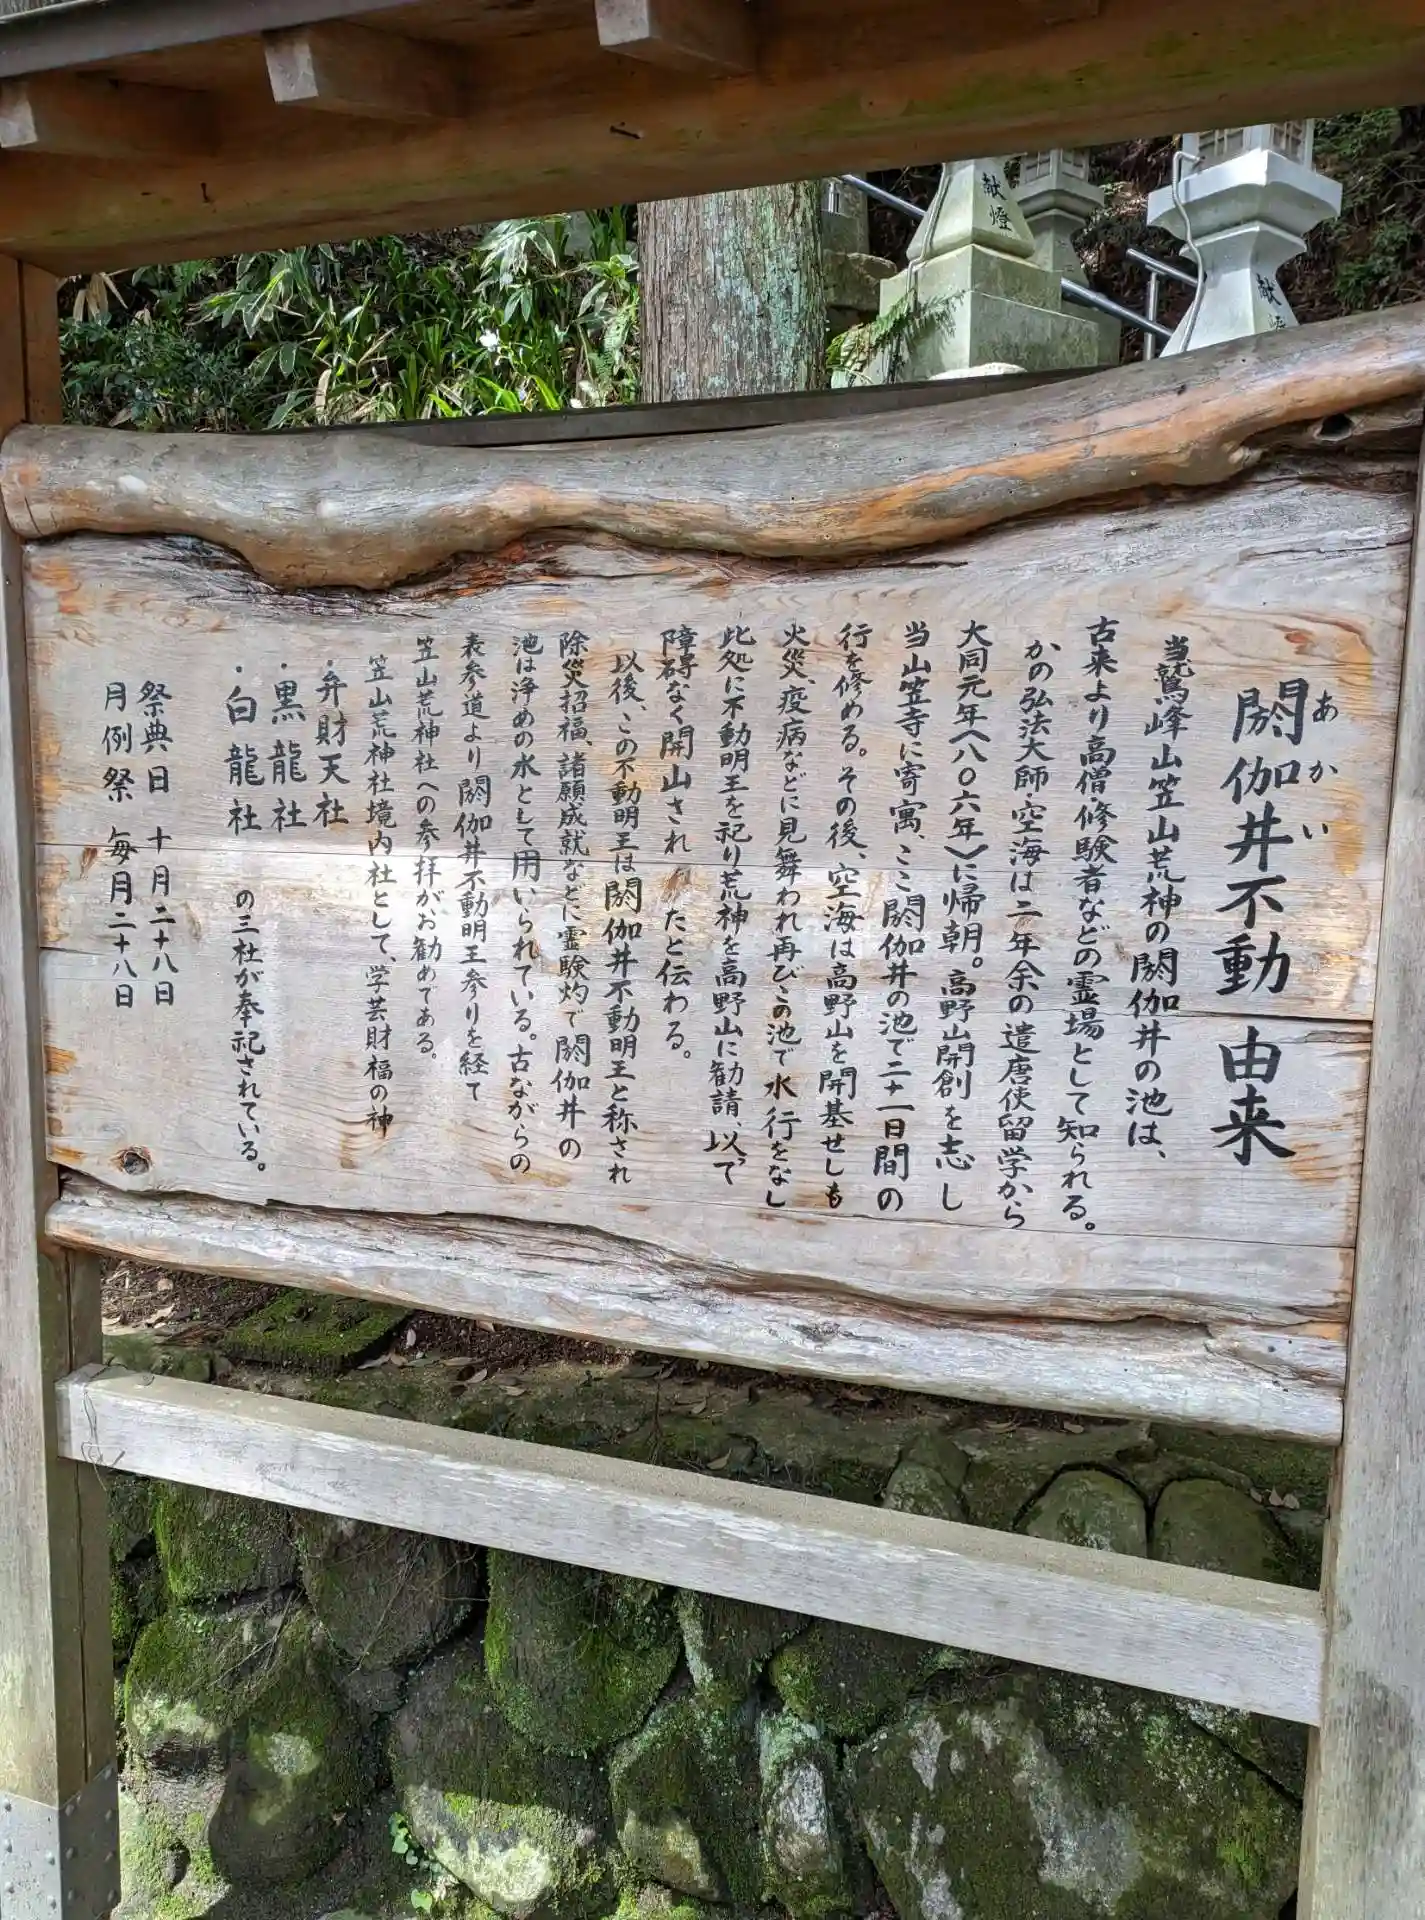 閼伽井不動 由来
あかい
当鷲峰山笠山荒神の閼伽井の池は、
古来より高僧修験者などの霊場として知られる。
かの弘法大師・空海は二年余の遣唐使留学から
大同元年(八〇六年)に帰朝。高野山開創を志し
当山笠寺に寄寓、ここ閼伽井の池で二十一日間の
行を修める。その後、空海は高野山を開基せしも
火災、疫病などに見舞われ再びこの池で水行をなし
此処に不動明王を祀り荒神を高野山に勧請、以って
障碍なく開山され たと伝わる。
以後、この不動明王は閼伽井不動明王と称され
除災招福、諸願成就などに霊験灼で閼伽井の
池は浄めの水として用いられている。古ながらの
表参道より閼伽井不動明王参りを経て
笠山荒神社への参拝がお勧めである。
笠山荒神社境内社として、学芸財福の神
・弁財天社
・黒龍社
・白龍社 の三社が奉祀されている。
祭典日 十月二十八日
月例祭 毎月二十八日
献燈
献燈